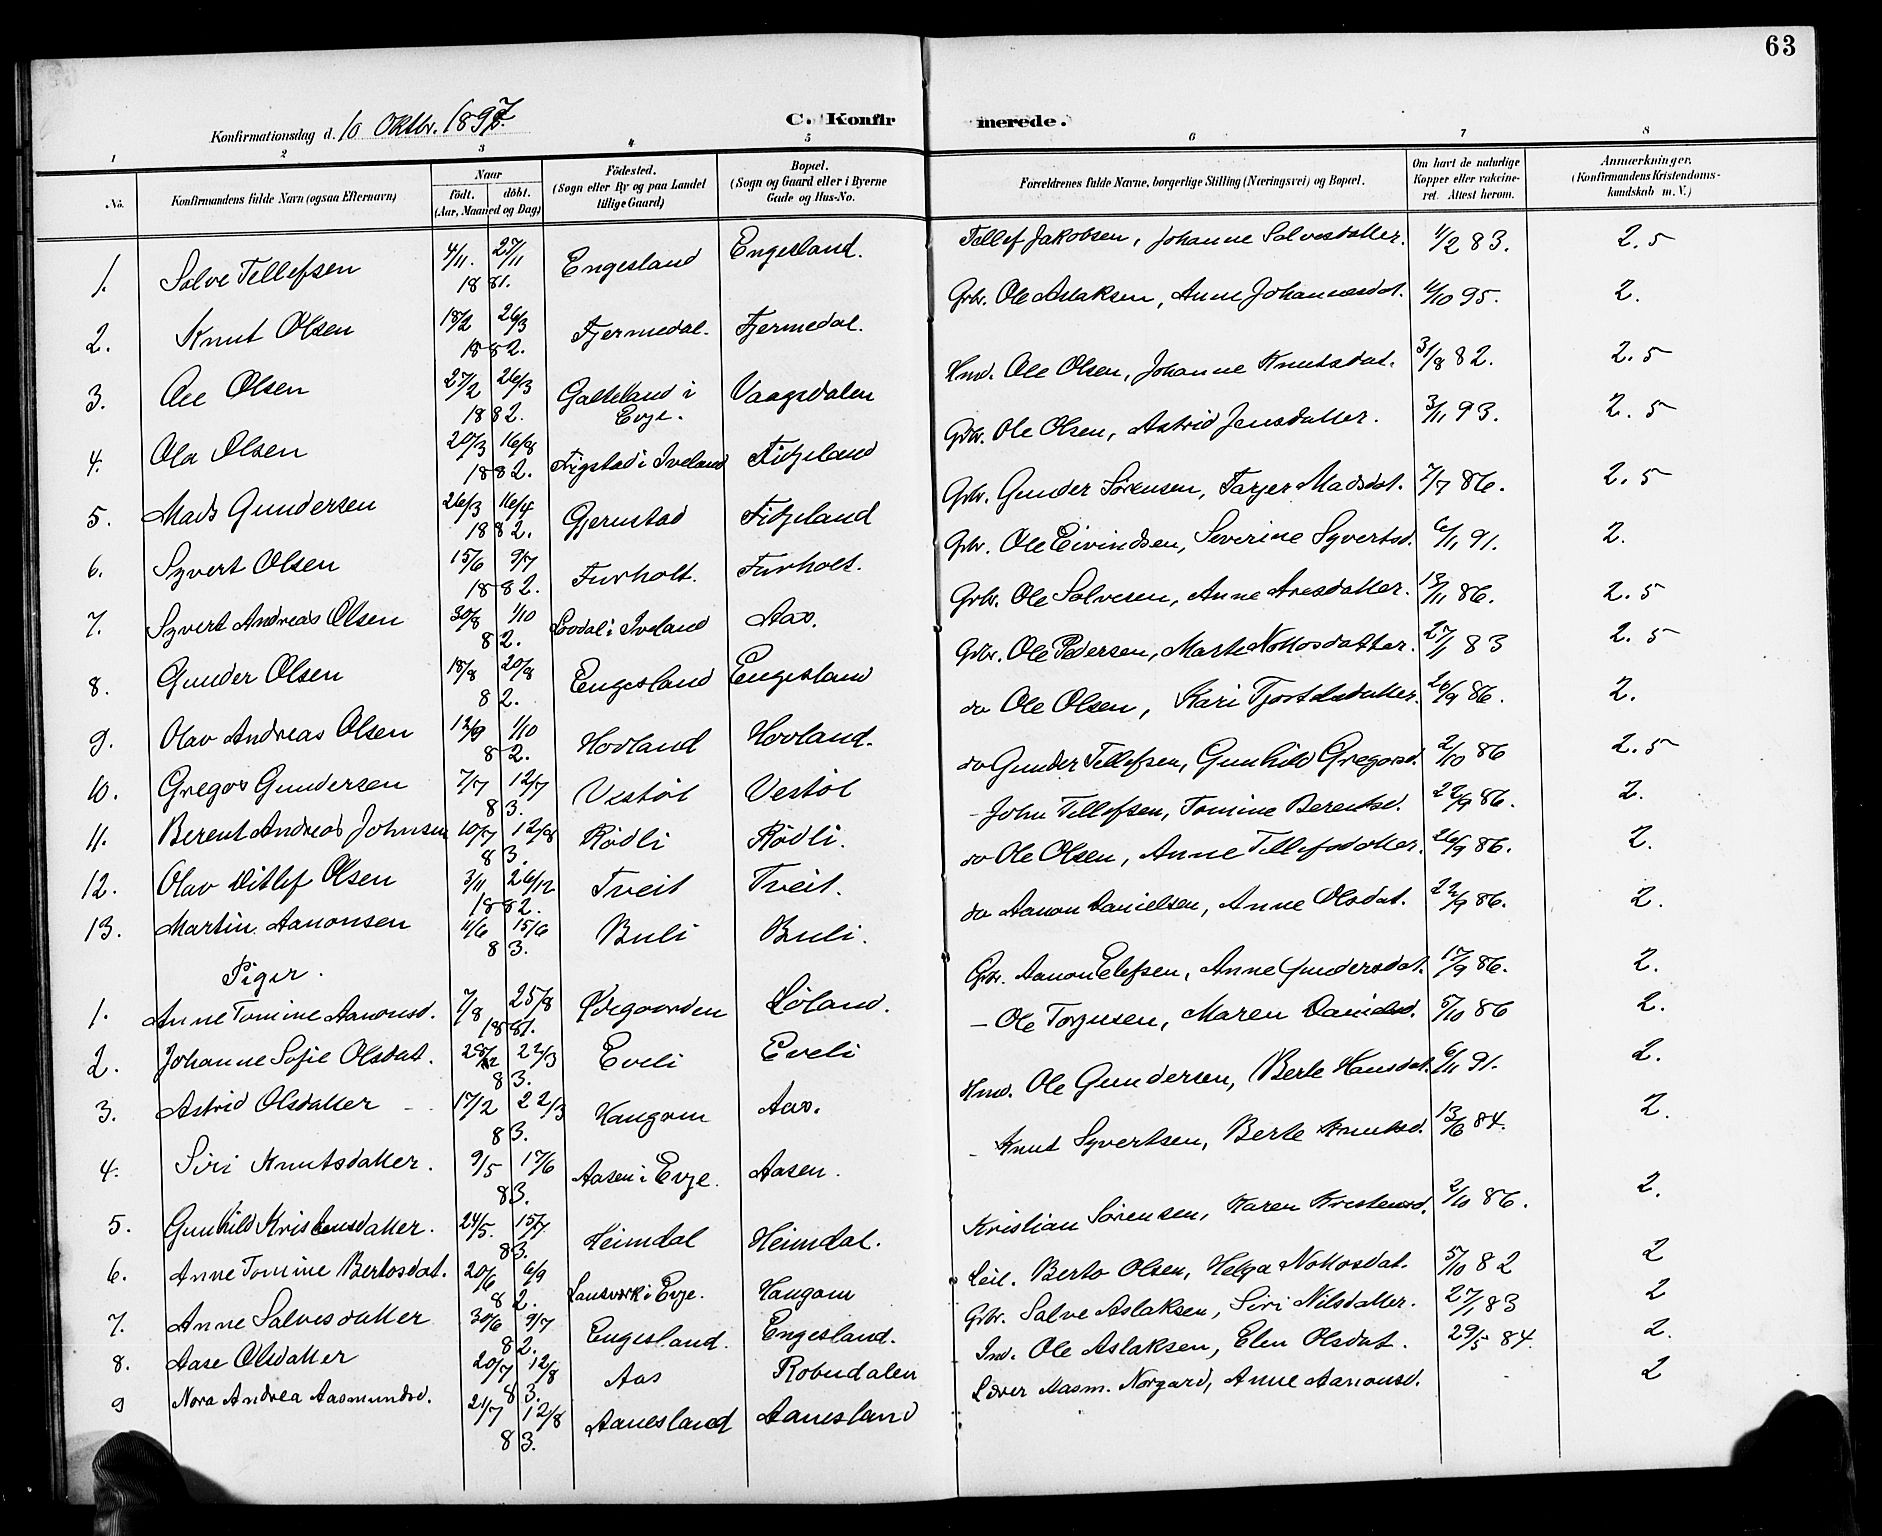 63
Konfirmationsdag d. 10 Oktbr. 1897.
C. Konfirmerede.
1 2 3 4 5 6 7 8
No.
Konfirmandens fulde Navn (ogsaa Efternavn)
Naar
födt. döbt.
(Aar, Maaned og Dag)
Födested.
(Sogn eller By og paa Landet
tillige Gaard)
Bopæl.
(Sogn og Gaard eller i Byerne
Gade og Hus-No.
Forældrenes fulde Navne, borgerlige Stilling (Næringsvei) og Bopæl.
Om havt de naturlige
Kopper eller vakcine-
ret. Attest herom.
Anmærkninger.
(Konfirmandens Kristendoms-
kundskab m. V.)
1. Salve Tellefsen 4/11. 27/11 1881. Engesland Engesland. Tellef Jakobsen, Johanne Salvesdatter. 1/2 83. 2.5
2. Knut Olsen 18/2 26/3 1882. Fjermedal. Fjermedal. Gbr. Ole Aslaksen, Anne Johannesdat. 4/10 95. 2.
3. Ole Olsen 27/2 26/3 1882. Galteland i Evje. Vaagsdalen Hmd. Ole Olsen, Johanne Knutsdat. 31/8 82. 2.5
4. Ola Olsen 20/3 16/8 1882. Frigstad i Iveland Fidjeland Gbr. Ole Olsen, Astrid Jensdatter. 3/11 93. 2.5
5. Mads Gundersen 26/3 16/4 1882. Gjerustad Fidjeland Gbr. Gunder Sörensen, Tarjer Madsdat. 7/7 86. 2.5
6. Syvert Olsen 15/6 9/7 1882. Furholt. Furholt. Gbr. Ole Eivindsen, Severine Syvertsd. 6/11 91. 2.
7. Syvert Andreas Olsen 30/8 1/10 82. i Iveland Aas. Gbr. Ole Salvesen, Anne Aresdatter. 13/11 86. 2.5
8. Gunder Olsen 18/8 20/8 82. Engesland Engesland Gbr. Ole Pedersen, Marte Nottosdatter. 27/1 83 2.5
9. Olav Andreas Olsen 12/9 1/10 82. Hovland Hovland. do Ole Olsen, Kari 26/9 86. 2.
10. Gregos Gundersen 7/7 12/7 83. Vestöl Vestöl do Gunder Tellefsen, Gunhild Gregosd. 2/10 86 2.5
11. Berent Andreas Johnsen 10/7 12/8 83. Rödli Rödli. - John Tellefsen, Tomine Berentsd. 22/9 86. 2.
12. Olav Ditlef Olsen 3/11 26/12 1882. Tveit Tveit. do Ole Olsen, Anne Tellefsdatter. 26/9 86. 2.
13. Martin Aanonsen 4/6 15/6 83. Buli Buli. do Aanon Danielsen, Anne Olsdat. 22/9 86. 2.
Piger.
1. Anne Tomine Aanonsd. 7/8 25/8 1881. Ødegaarden Løland. Gbr. Aanon Elefsen, Anne Gundersdat. 17/9 86. 2.
2. Johanne Sofie Olsdat. 22/3 83. Eveli Eveli - Ole Torjusen, Maren Danielsd. 5/10 86 2.
3. Astrid Olsdatter 17/2 22/3 83. Haugom Aas. Hmd. Ole Gundersen, Berte Hansdat. 6/11 91. 2.
4. Siri Knutsdatter. 9/5 17/6 83. Aasen i Evje. Aasen. - Knut Syvertsen, Berte Knutsd. 13/6 84. 2.
5. Gunhild Kristensdatter. 24/5. 15/7 83. Heimdal Heimdal. Kristian Sörensen, Karen Kristensd. 2/10 86. 2.
6. Anne Tomine Bertosdat. 20/6 6/9 82. Lausverk i Evje. Haugom Leil. Berto Olsen, Helga Nottosdat. 5/10 82 2
7. Anne Salvesdatter 30/6 9/7 82. Engesland. Engesland. Gbr. Salve Aslaksen, Siri Nilsdatter. 27/1 83 2
8. Aase Olsdatter 20/7 12/8 83. Aas Robudalen Ind. Ole Aslaksen, Elen Olsdat. 29/5 84. 2.
9 Nora Andrea Aasmundsd. 21/7 12/8 83. Aanesland Aanesland Lærer Aasm. Norgard, Anne Aanonsd. 2